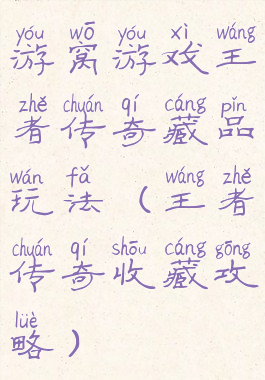 yóu wō yóu xì wáng
游窝游戏王
zhě chuán qí cáng pǐn
者传奇藏品
wán fǎ wáng zhě
玩法（王者
chuán qí shōu cáng gōng
传奇收藏攻
lüè
略）